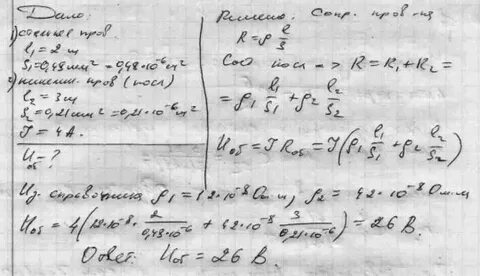 Дано:
1) стальная пров.
l₁ = 2 м
S₁ = 0,48 мм² = 0,48·10⁻⁶ м²
2) никелин. пров (посл)
l₂ = 3 м
S₂ = 0,21 мм² = 0,21·10⁻⁶ м²
J = 4 А.
Uоб = ?
Решение: Сопр. пров-ка
R = ρ l/S
Соед посл => R = R₁ + R₂ =
= ρ₁ l₁/S₁ + ρ₂ l₂/S₂
Uоб = J Rоб = J(ρ₁ l₁/S₁ + ρ₂ l₂/S₂)
Из справочника ρ₁ = 12·10⁻⁸ Ом·м, ρ₂ = 42·10⁻⁸ Ом·м
Uоб = 4(12·10⁻⁸ 2/0,48·10⁻⁶ + 42·10⁻⁸ 3/0,21·10⁻⁶) = 26 В.
Ответ: Uоб = 26 В.